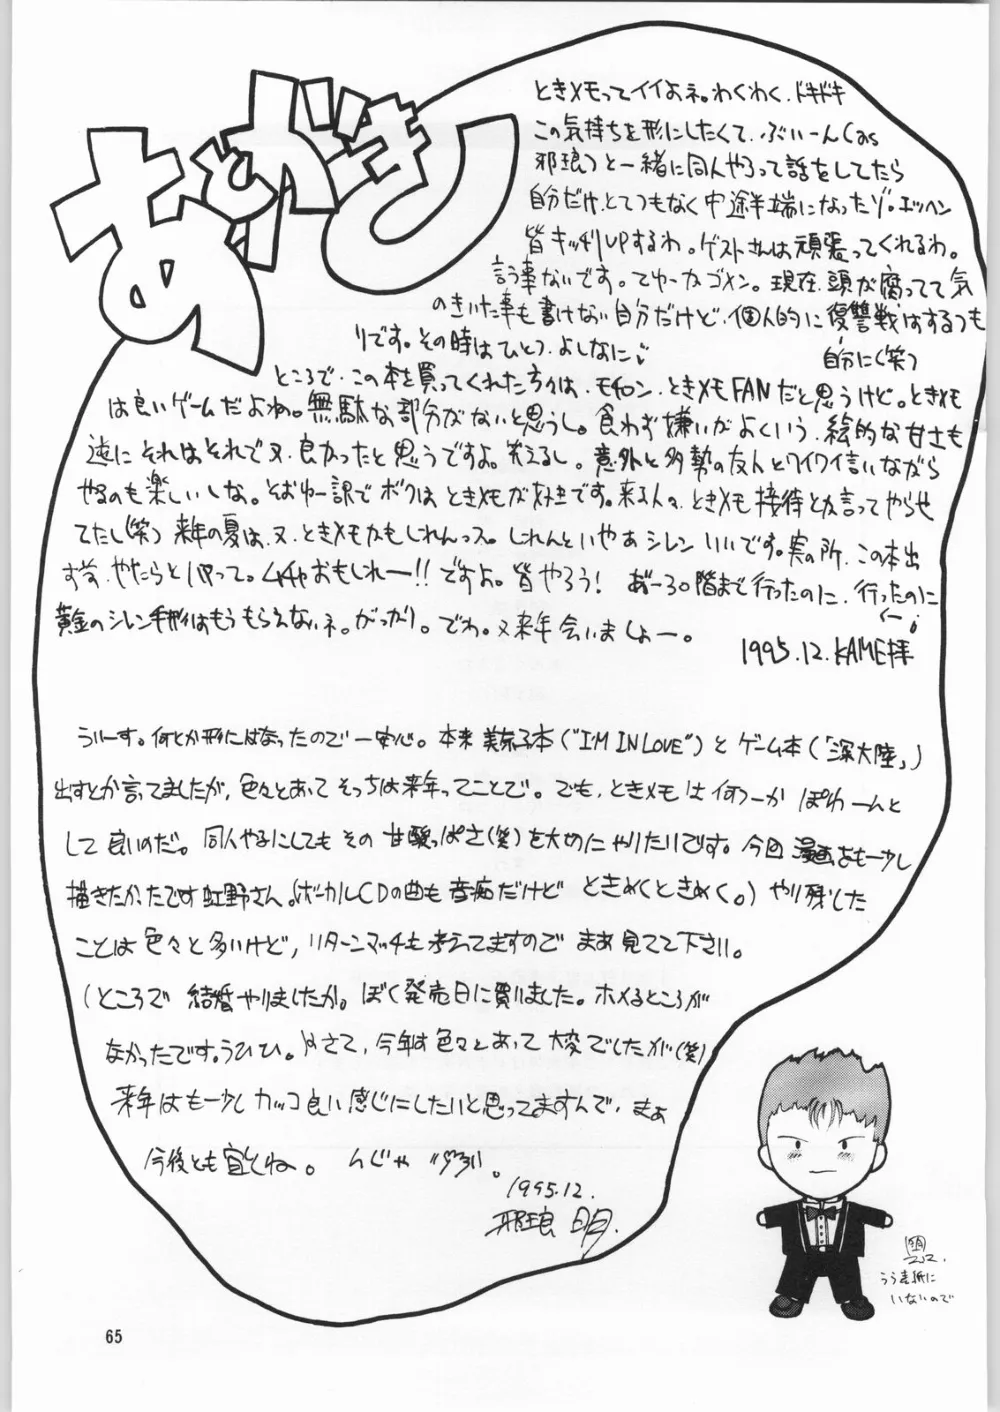 あとがき
ときメモってイイよネ。わくわく、ドキドキ
この気持ちを形にしたくて、ぶぃーん(as
邪琅)と一緒に同人やろって話をしてたら
自分だけ、とてつもなく中途半端になったゾ。エッヘン
皆キッチリUPするわ。ゲストさんは頑張ってくれるわ。
言う事ないです。てゆーかゴメン。現在、頭が腐ってて気
のきいた事も書けない自分だけど、個人的に復讐戦はするつも
自分に(笑)
りです。その時はひとつ、よしなに
ところで、この本を買ってくれた方々は、モチロン、ときメモFANだと思うけど。ときメモ
は良いゲームだよね。無駄な部分がないと思うし。食わず嫌いがよくいう、絵的な甘さも
逆にそれはそれで又、良かったと思うですよ。笑えるし。意外と多勢の友人とワイワイ言いながら
やるのも楽しいしな。そおゆー訳でボクはときメモが好きです。来る人々、ときメモ接待とか言ってやらせ
てたし(笑) 来年の夏は、又、ときメモかもしれんっス。しれんといやあシレンいいです。実の所、この本出
す前、やたらとハマって。ムチャおもしれー!!ですよ。皆やろう! あーう30階まで行ったのに、行ったのに
黄金のシレン手形はもうもらえないネ。がっかり。でわ。又来年会いましょー。
1995.12.KAME拝
ういーす。何とか形にはなったので一安心。本来美奈子本("I'M IN LOVE")とゲーム本(「深大陸」)
出すとか言ってましたが、色々とあってそっちは来年ってことで。でも、ときメモは何つーかぽわーんと
して良いのだ。同人やるにしてもその甘酸っぱさ(笑)を大切にやりたいです。今回漫画をもー少し
描きたかったです虹野さん。(ボーカルCDの曲も音痴だけどときめくときめく。)やり残した
ことは色々と多いけど、リターンマッチも考えてますのでまあ見てて下さい。
(ところで結婚やりましたか。ぼく発売日に買いました。ホメるところが
なかったです。うひひ。)さて、今年は色々とあって大変でしたが(笑)
来年はもー少しカッコ良い感じにしたいと思ってますんで、まぁ
今後とも宜しくね。んじゃ
1995.12.
邪琅 明.
うら表紙に
いないので
65